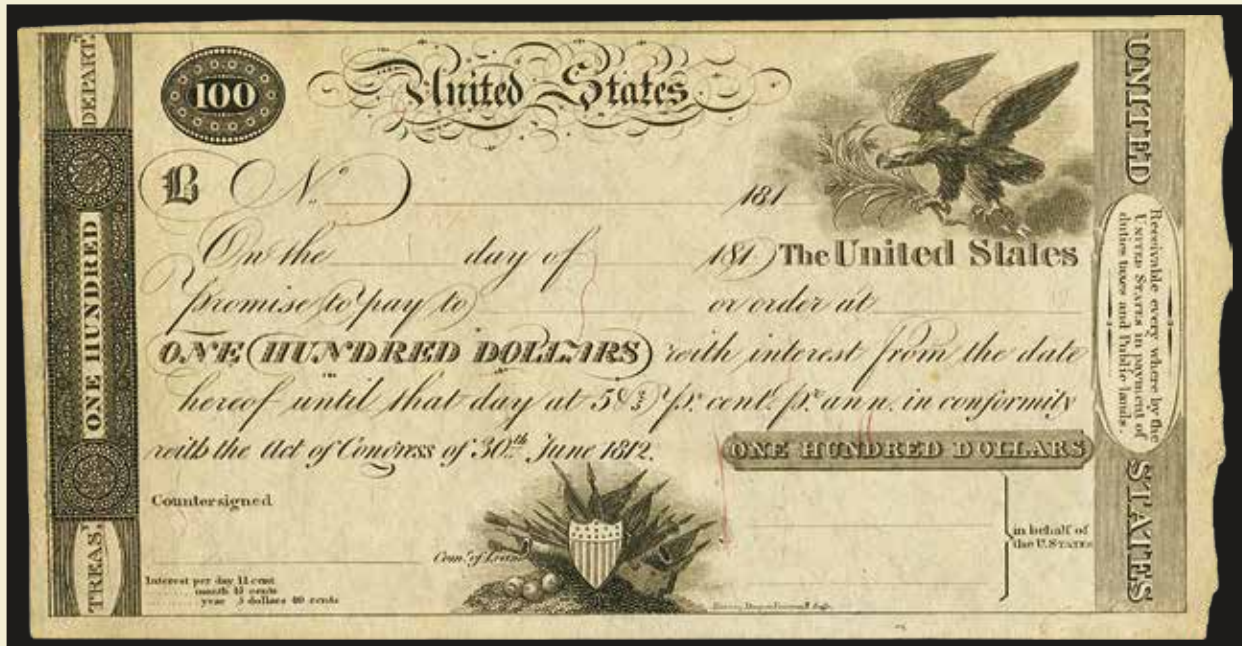 DEPART.
ONE HUNDRED
TREAS.
100
United States
B No. 181
On the day of 181 The United States
promise to pay to or order at
ONE HUNDRED DOLLARS with interest from the date
hereof until that day at 5⅖ pr. cent. pr. ann. in conformity
with the Act of Congress of 30th June 1812.
ONE HUNDRED DOLLARS
Countersigned
Comr. of Loans
in behalf of
the U.STATES
Interest per day 1½ cent
month 45 cents
year 5 dollars 40 cents
UNITED
Receivable every where by the
UNITED STATES in payment of
duties taxes and Public lands.
STATES